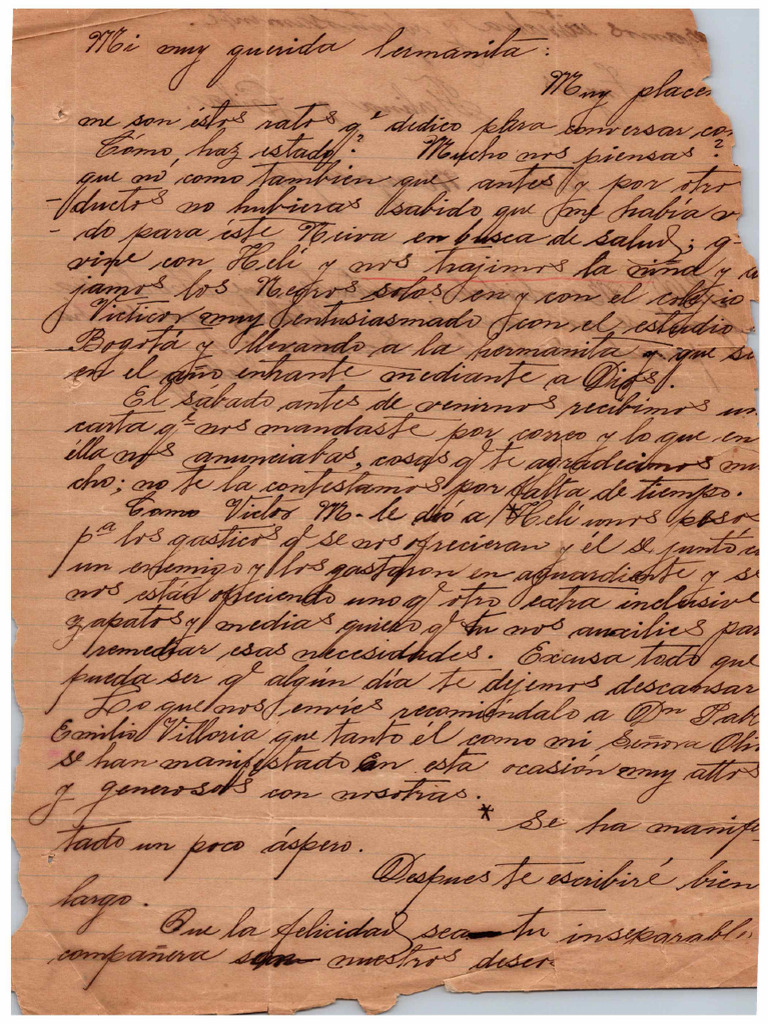 Mi muy querida hermanita:
Muy place
me son éstos ratos qe dedico para conversar co
Cómo haz estado? Mucho nos piensas?
que no, como tambien que antes y por otro
ductos no hubieras sabido que me había v
do para este Neiva en busca de salud; q
vine con Helí y nos trajimos la niña y
jamos los Negros solos en y con el colegio
Victico muy entusiasmado con el estudio
Bogotá y llevando a la hermanita y que se
en el año entrante mediante a Dios.
El sábado antes de venirnos recibimos un
carta qe nos mandaste por correo y lo que en
élla nos anunciabas, cosas qe te agradecimos mu
cho; no te la contestamos por falta de tiempo.
Como Victor M- le dió a *Helí unos pesos
pa los gasticos qe se nos ofrecieran y él se juntó c
un enemigo y los gastaron en aguardiente y se
nos están ofreciendo uno qe otro extra inclusive
zapatos y medias quiero qe tu nos auxilies par
remediar esas necesidades. Excusa todo que
pueda ser qe algún día te dejemos descansar
Lo que nos envíes recomiéndalo a Dn Pab
Emilio Villoria que tanto el como mi Señora Oli
se han manifestado en esta ocasión muy attos
y generosos con nosotras.
* Se ha manife
tado un poco áspero.
Despues te escribiré bien
largo.
Que la felicidad sea tu inseparable
compañera son nuestros deseo